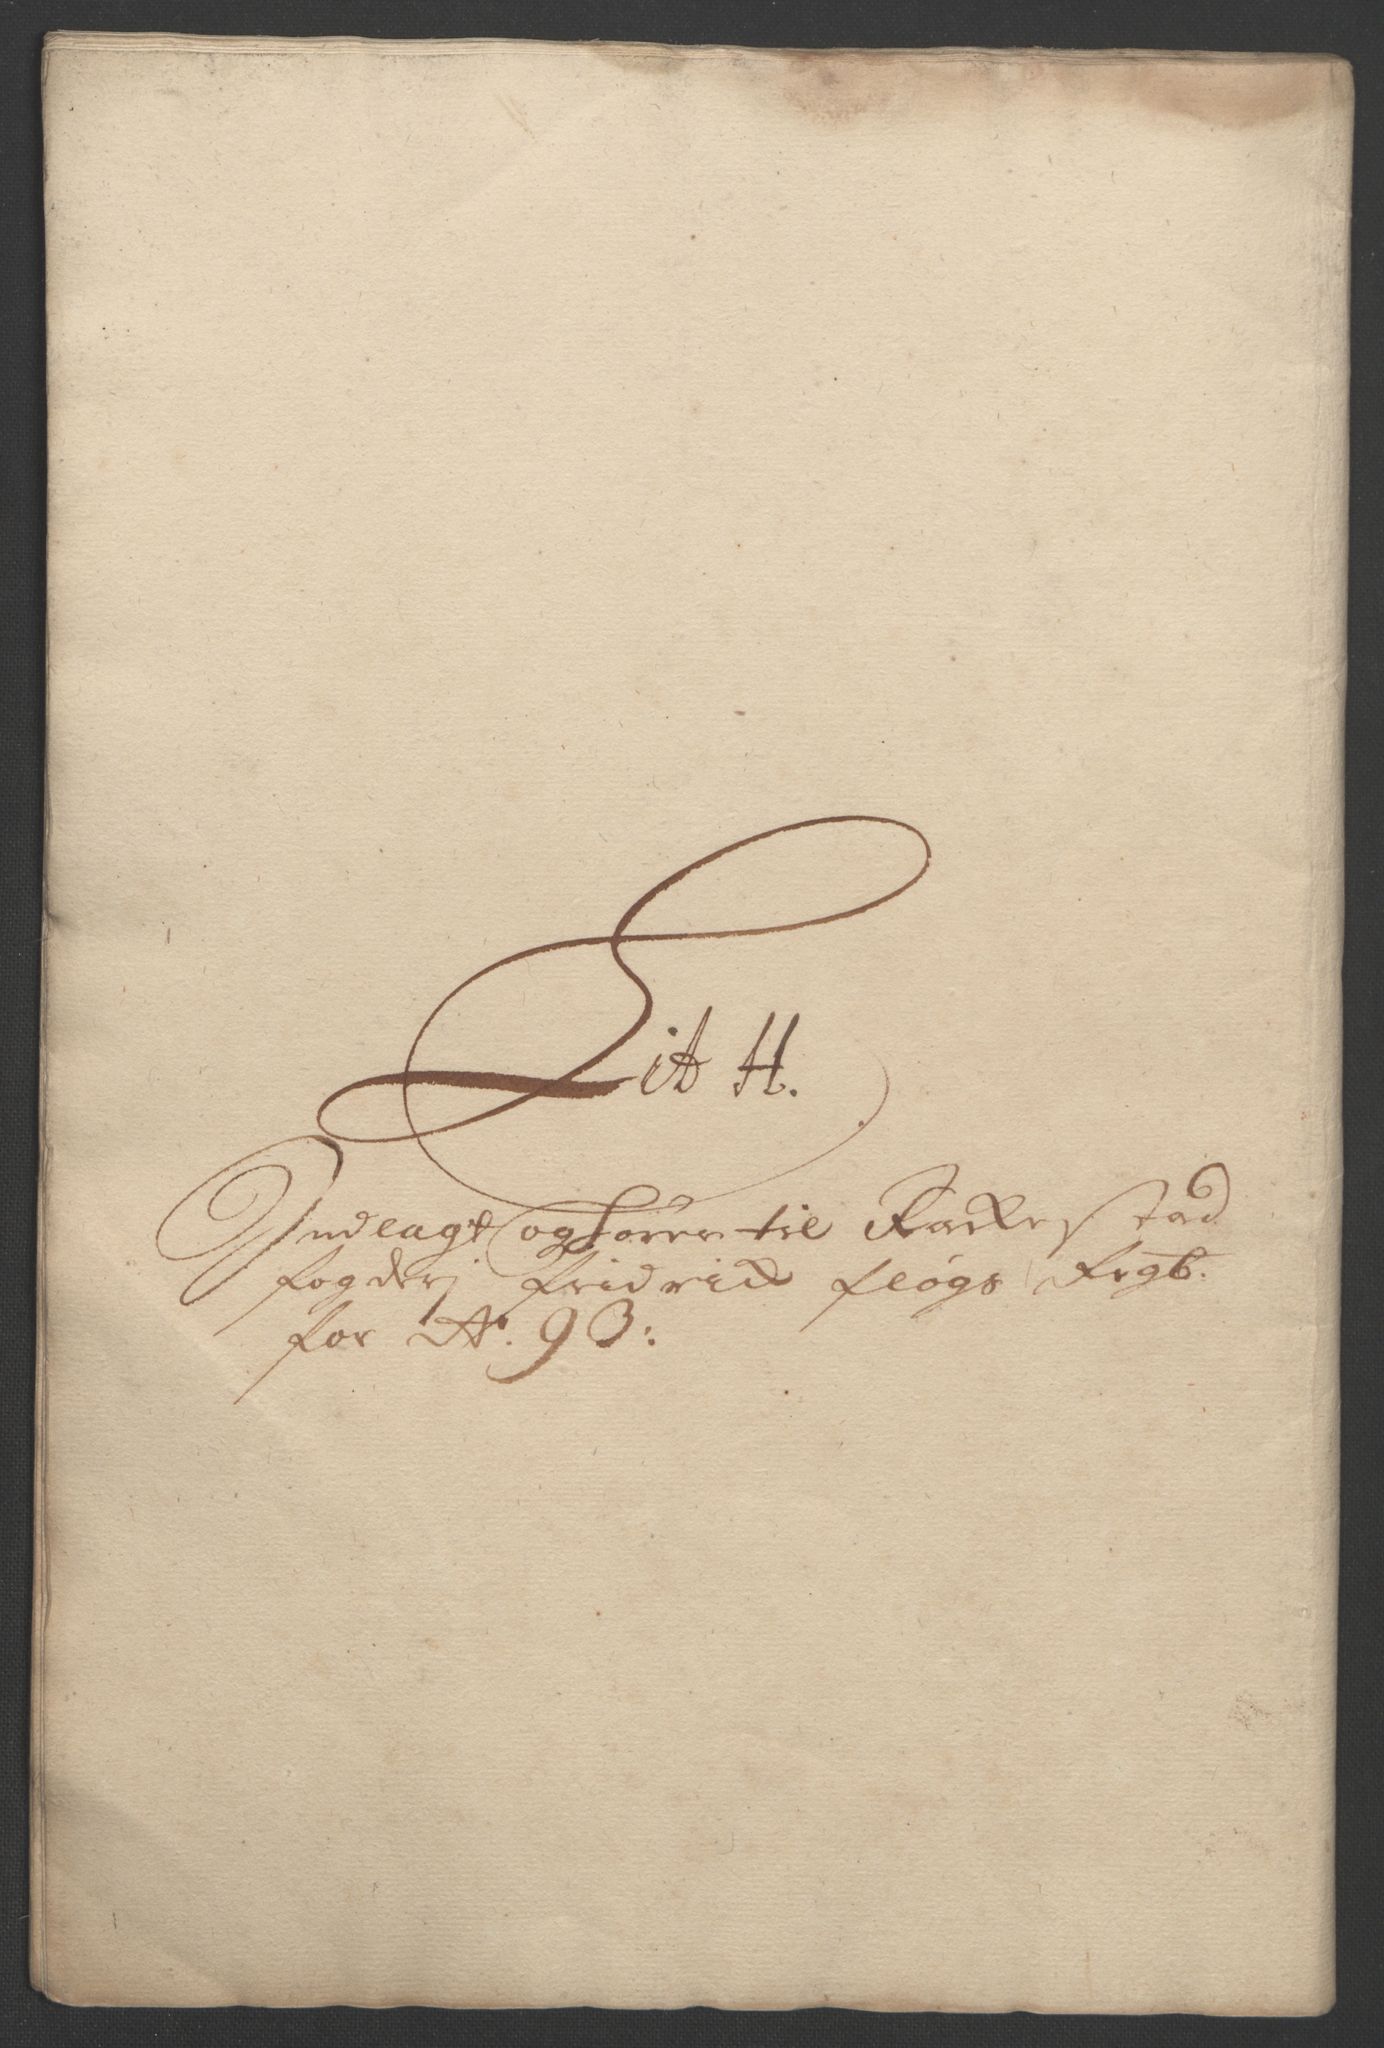 Lit H.
Indlagt og hører til Rackestad
fogderj fridrick fløgs Regb.
for Ao. 93: